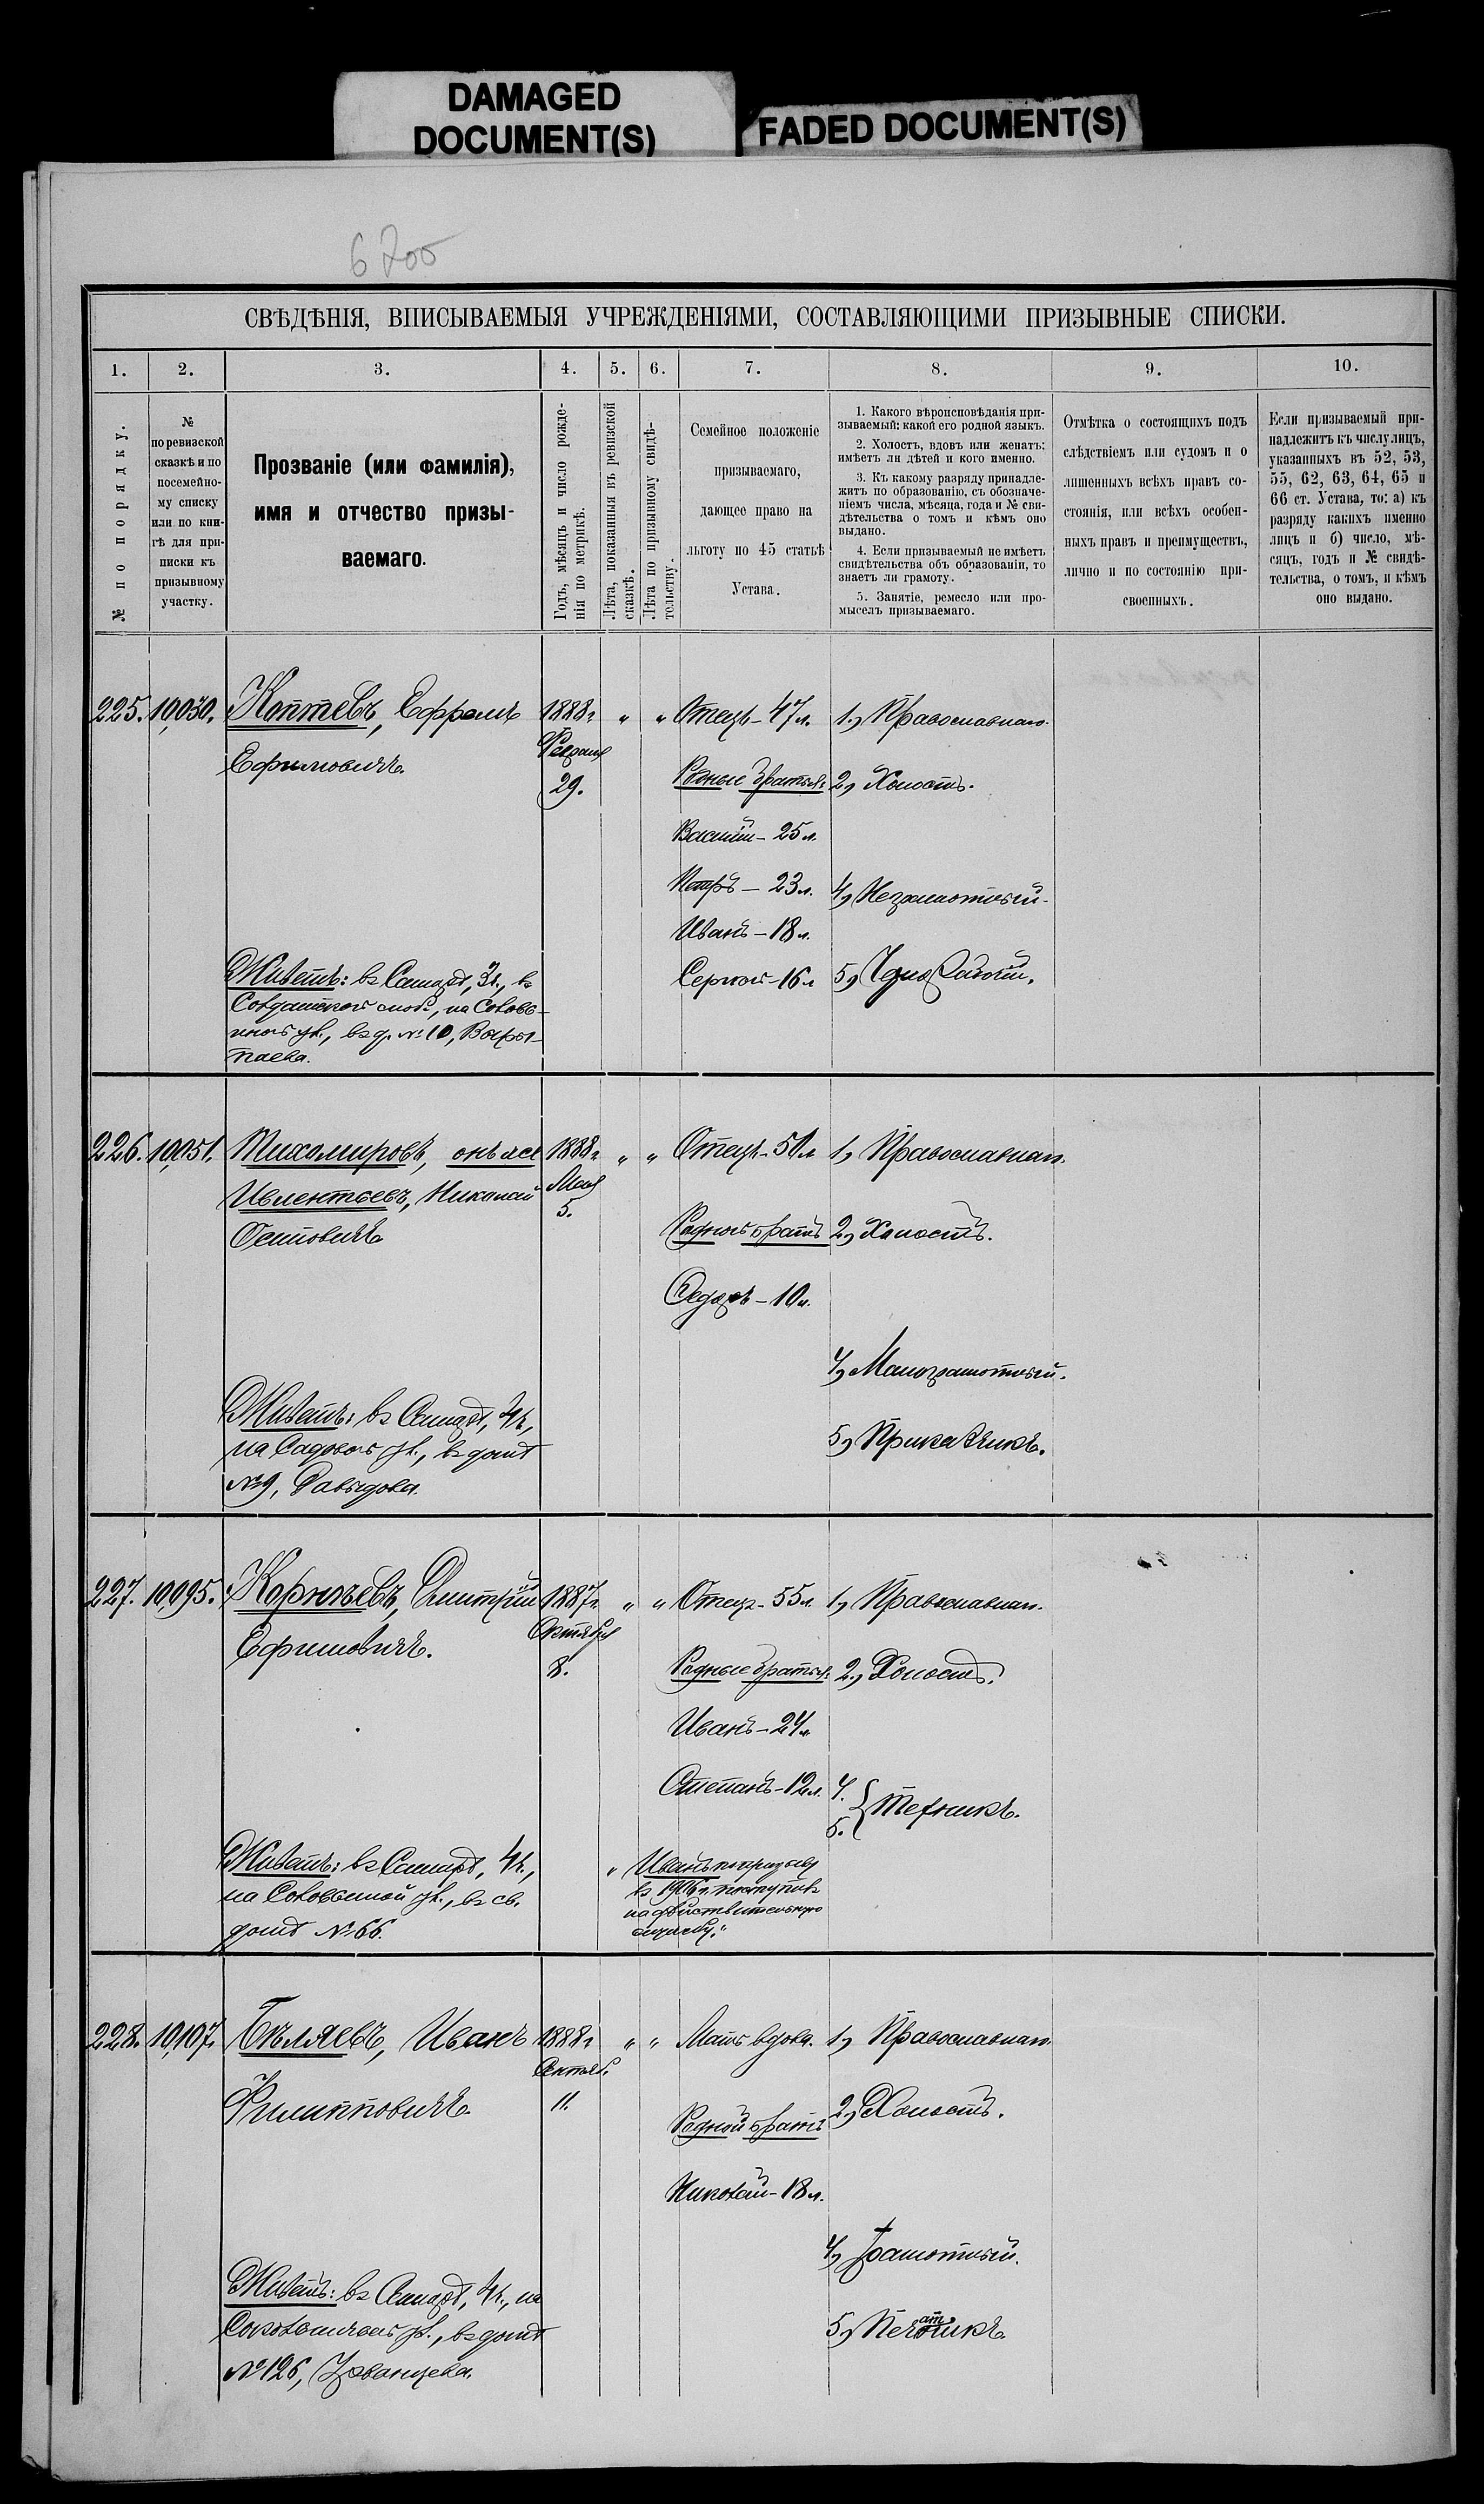 DAMAGED
DOCUMENT(S)
FADED DOCUMENT(S)
6200
СВѢДѢНІЯ, ВПИСЫВАЕМЫЯ УЧРЕЖДЕНІЯМИ, СОСТАВЛЯЮЩИМИ ПРИЗЫВНЫЕ СПИСКИ.
1.
2.
3.
4.
5.
6.
7.
8.
9.
10.
№ по порядку.
№
по ревизской
сказкѣ и по
посемейно-
му списку
или по кни-
гѣ для при-
писки къ
призывному
участку.
Прозваніе (или фамилія),
имя и отчество призы-
ваемаго.
Годъ, мѣсяцъ и число рожде-
нія по метрикѣ.
Лѣта, показанныя въ ревизской
сказкѣ.
Лѣта по призывному свидѣ-
тельству.
Семейное положеніе
призываемаго,
дающее право на
льготу по 45 статьѣ
Устава.
1. Какого вѣроисповѣданія при-
зываемый: какой его родной языкъ.
2. Холостъ, вдовъ или женатъ:
имѣетъ ли дѣтей и кого именно.
3. Къ какому разряду принадле-
житъ по образованію, съ обозначе-
ніемъ числа, мѣсяца, года и № сви-
дѣтельства о томъ и кѣмъ оно
выдано.
4. Если призываемый не имѣетъ
свидѣтельства объ образованіи, то
знаетъ ли грамоту.
5. Занятіе, ремесло или про-
мыселъ призываемаго.
Отмѣтка о состоящихъ подъ
слѣдствіемъ или судомъ и о
лишенныхъ всѣхъ правъ со-
стоянія, или всѣхъ особен-
ныхъ правъ и преимуществъ,
лично и по состоянію при-
своенныхъ.
Если призываемый при-
надлежитъ къ числу лицъ,
указанныхъ въ 52, 53,
55, 62, 63, 64, 65 и
66 ст. Устава, то: а) къ
разряду какихъ именно
лицъ и б) число, мѣ-
сяцъ, годъ и № свидѣ-
тельства, о томъ, и кѣмъ
оно выдано.
225. 10,030. Коптевъ, Ефремъ
Ефимовичъ.
1888г
Февраля
29.
" "
Отецъ - 47 л.
Родные братья:
Василій - 25 л.
Петръ - 23 л.
Иванъ - 18 л.
Сергѣй - 16 л
1, Православнаго.
2, Холостъ.
4, Неграмотный.
5, Чернорабочій.
Живетъ: въ Самарѣ, 3ч., въ
Солдатской слоб.,
въ д. № 10,
226. 10,051. Тихомировъ, онъ же
Ивлентьевъ, Николай
Осиповичъ
1888г
Мая
5.
" "
Отецъ - 51 л
Родной братъ
Федоръ - 10 л.
1, Православнаго.
2, Холостъ.
4, Малограмотный.
5, Прикащикъ.
Живетъ: въ Самарѣ, 4ч.,
на Садовой ул., въ домѣ
№9, Давыдова.
227. 10,095. Корнѣевъ, Дмитрій
Ефимовичъ.
1887г.
Октября
8.
" "
Отецъ - 55 л.
Родные братья:
Иванъ - 24 л.
Степанъ - 12 л.
"Иванъ по призыву
въ 1906 г. поступилъ
на дѣйствительную
службу."
1, Православнаго.
2, Холостъ.
4.
5.
Живетъ: въ Самарѣ, 4ч.,
на Соловьиной ул., въ св.
домѣ № 66.
228. 10,107. Бѣляевъ, Иванъ
Филипповичъ.
1888г
Сентяб.
11.
" "
Мать вдова.
Родной братъ
Николай - 18 л.
1, Православнаго.
2, Холостъ.
4, Грамотный.
5, Печатникъ.
Живетъ: въ Самарѣ, 4ч., на
ул., въ домѣ
№ 126,